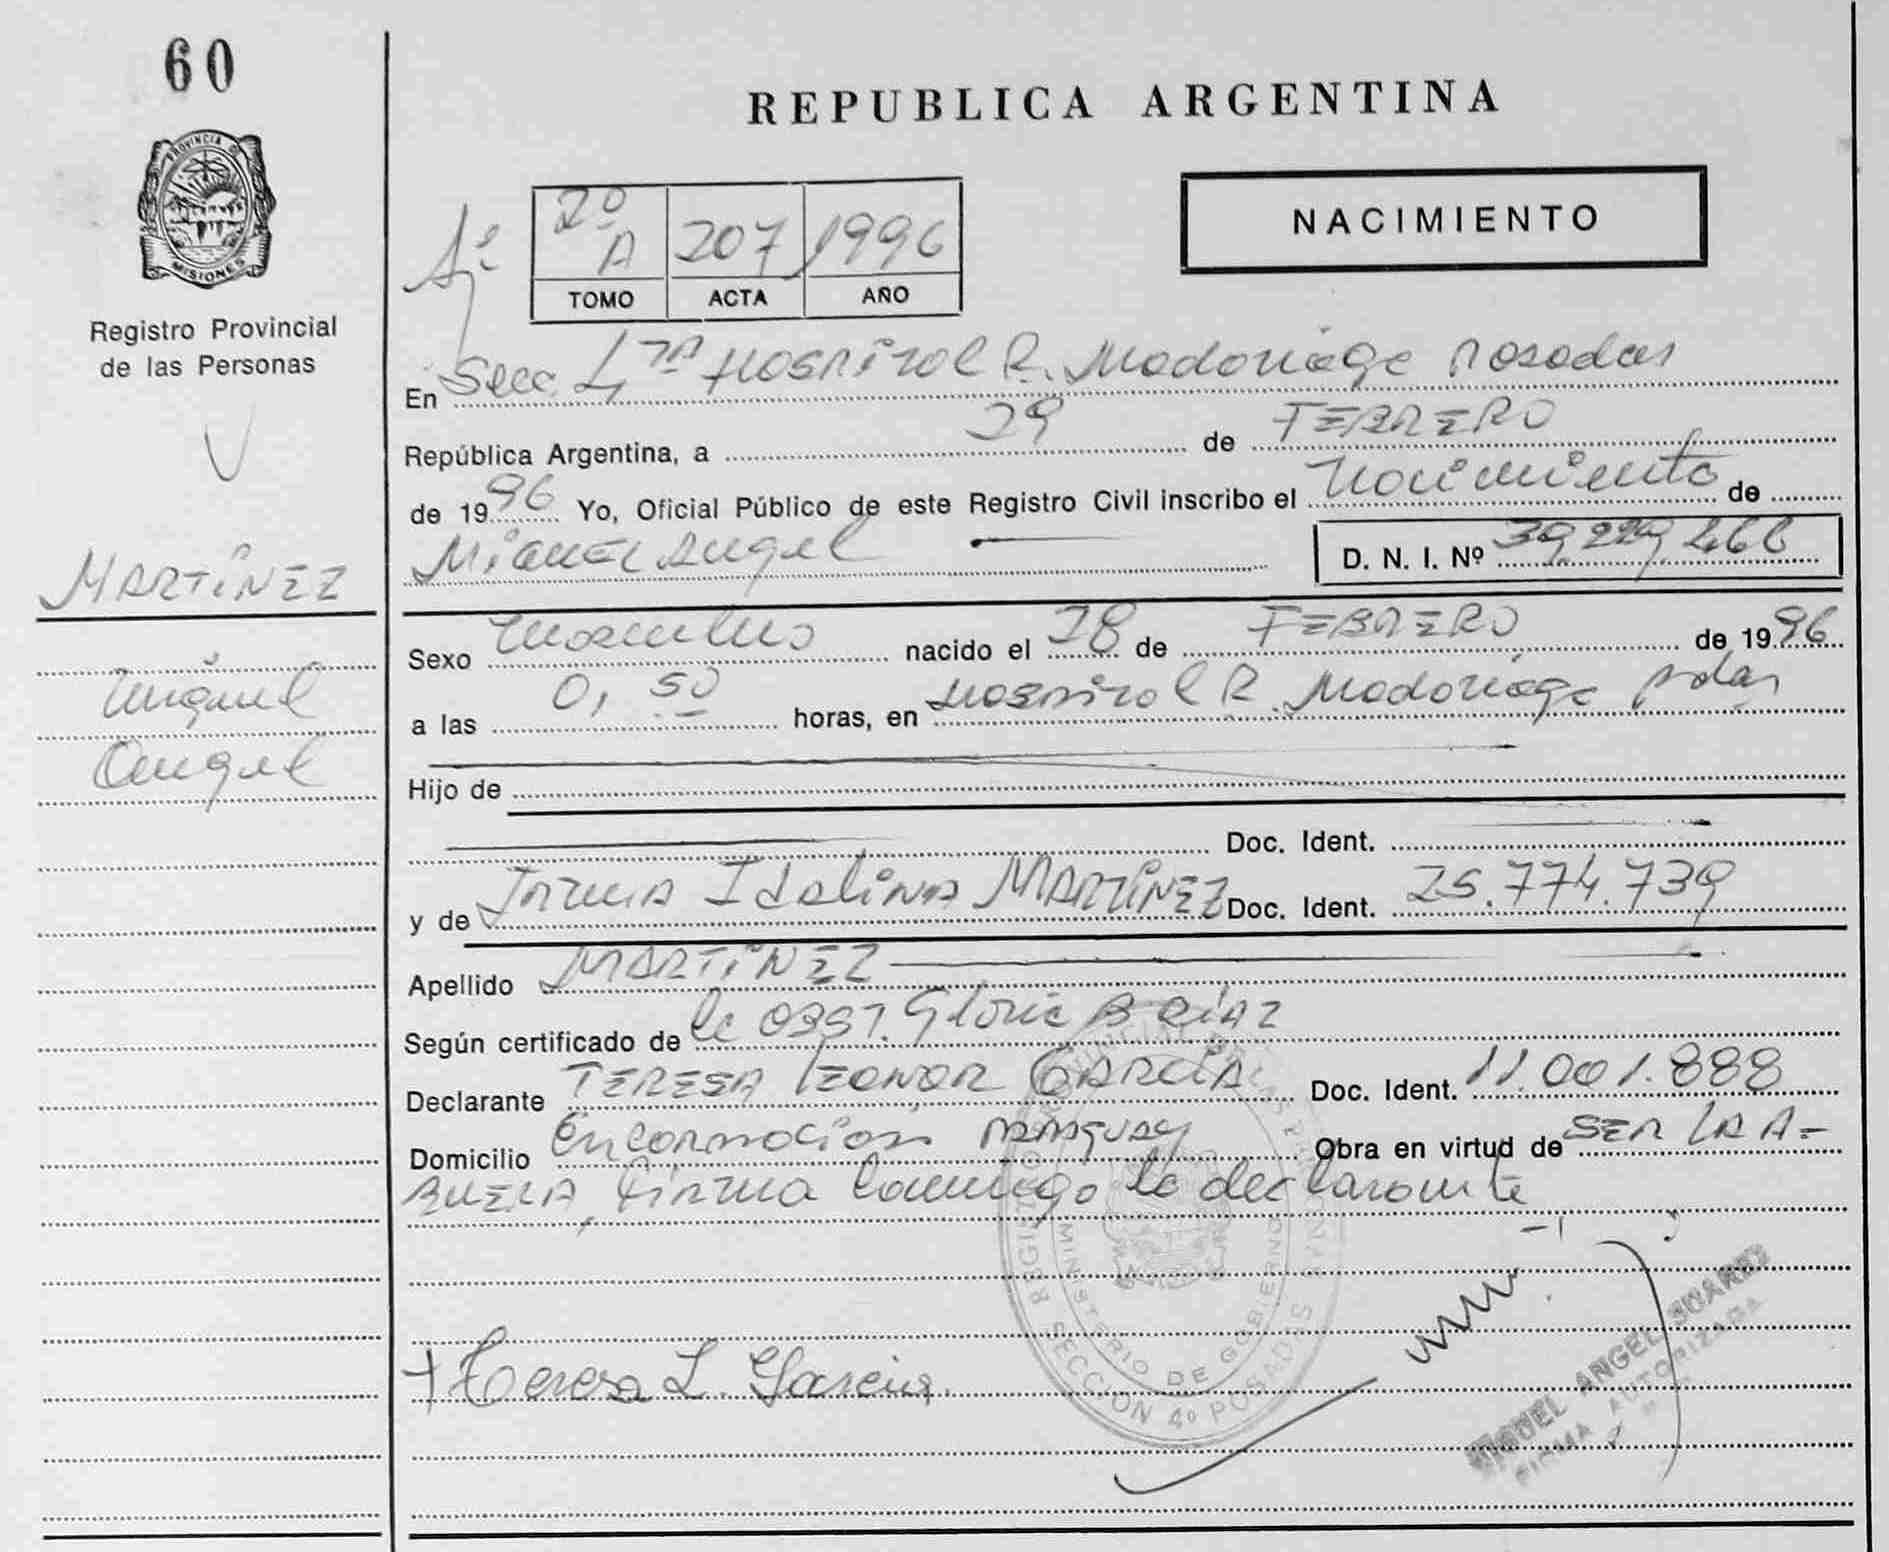 60
PROVINCIA DE
MISIONES
Registro Provincial
de las Personas
MARTÍNEZ
Miguel
Angel
REPUBLICA ARGENTINA
NACIMIENTO
2º A 207 1996
TOMO ACTA AÑO
En Secc 4ta Hospital R. Madariaga Posadas
República Argentina, a 29 de FEBRERO
de 1996 Yo, Oficial Público de este Registro Civil inscribo el Nacimiento de
Miguel Angel D. N. I. Nº 39.229.466
Sexo Masculino nacido el 28 de FEBRERO de 1996
a las 0,50 horas, en Hospital R. Madariaga Pdas
Hijo de
Doc. Ident.
y de Irma Idalina MARTÍNEZ Doc. Ident. 25.774.739
Apellido MARTÍNEZ
Según certificado de la OBST. Gloria B DÍAZ
Declarante TERESA LEONOR GARCÍA Doc. Ident. 11.001.888
Domicilio Encarnación PARAGUAY Obra en virtud de SER LA A=
BUELA, firma conmigo la declarante
Teresa L. Garcia
REGISTRO
MINISTERIO DE GOBIERNO
SECCION 4º POSADAS MISIONES
MIGUEL ANGEL SUAREZ
FIRMA AUTORIZADA